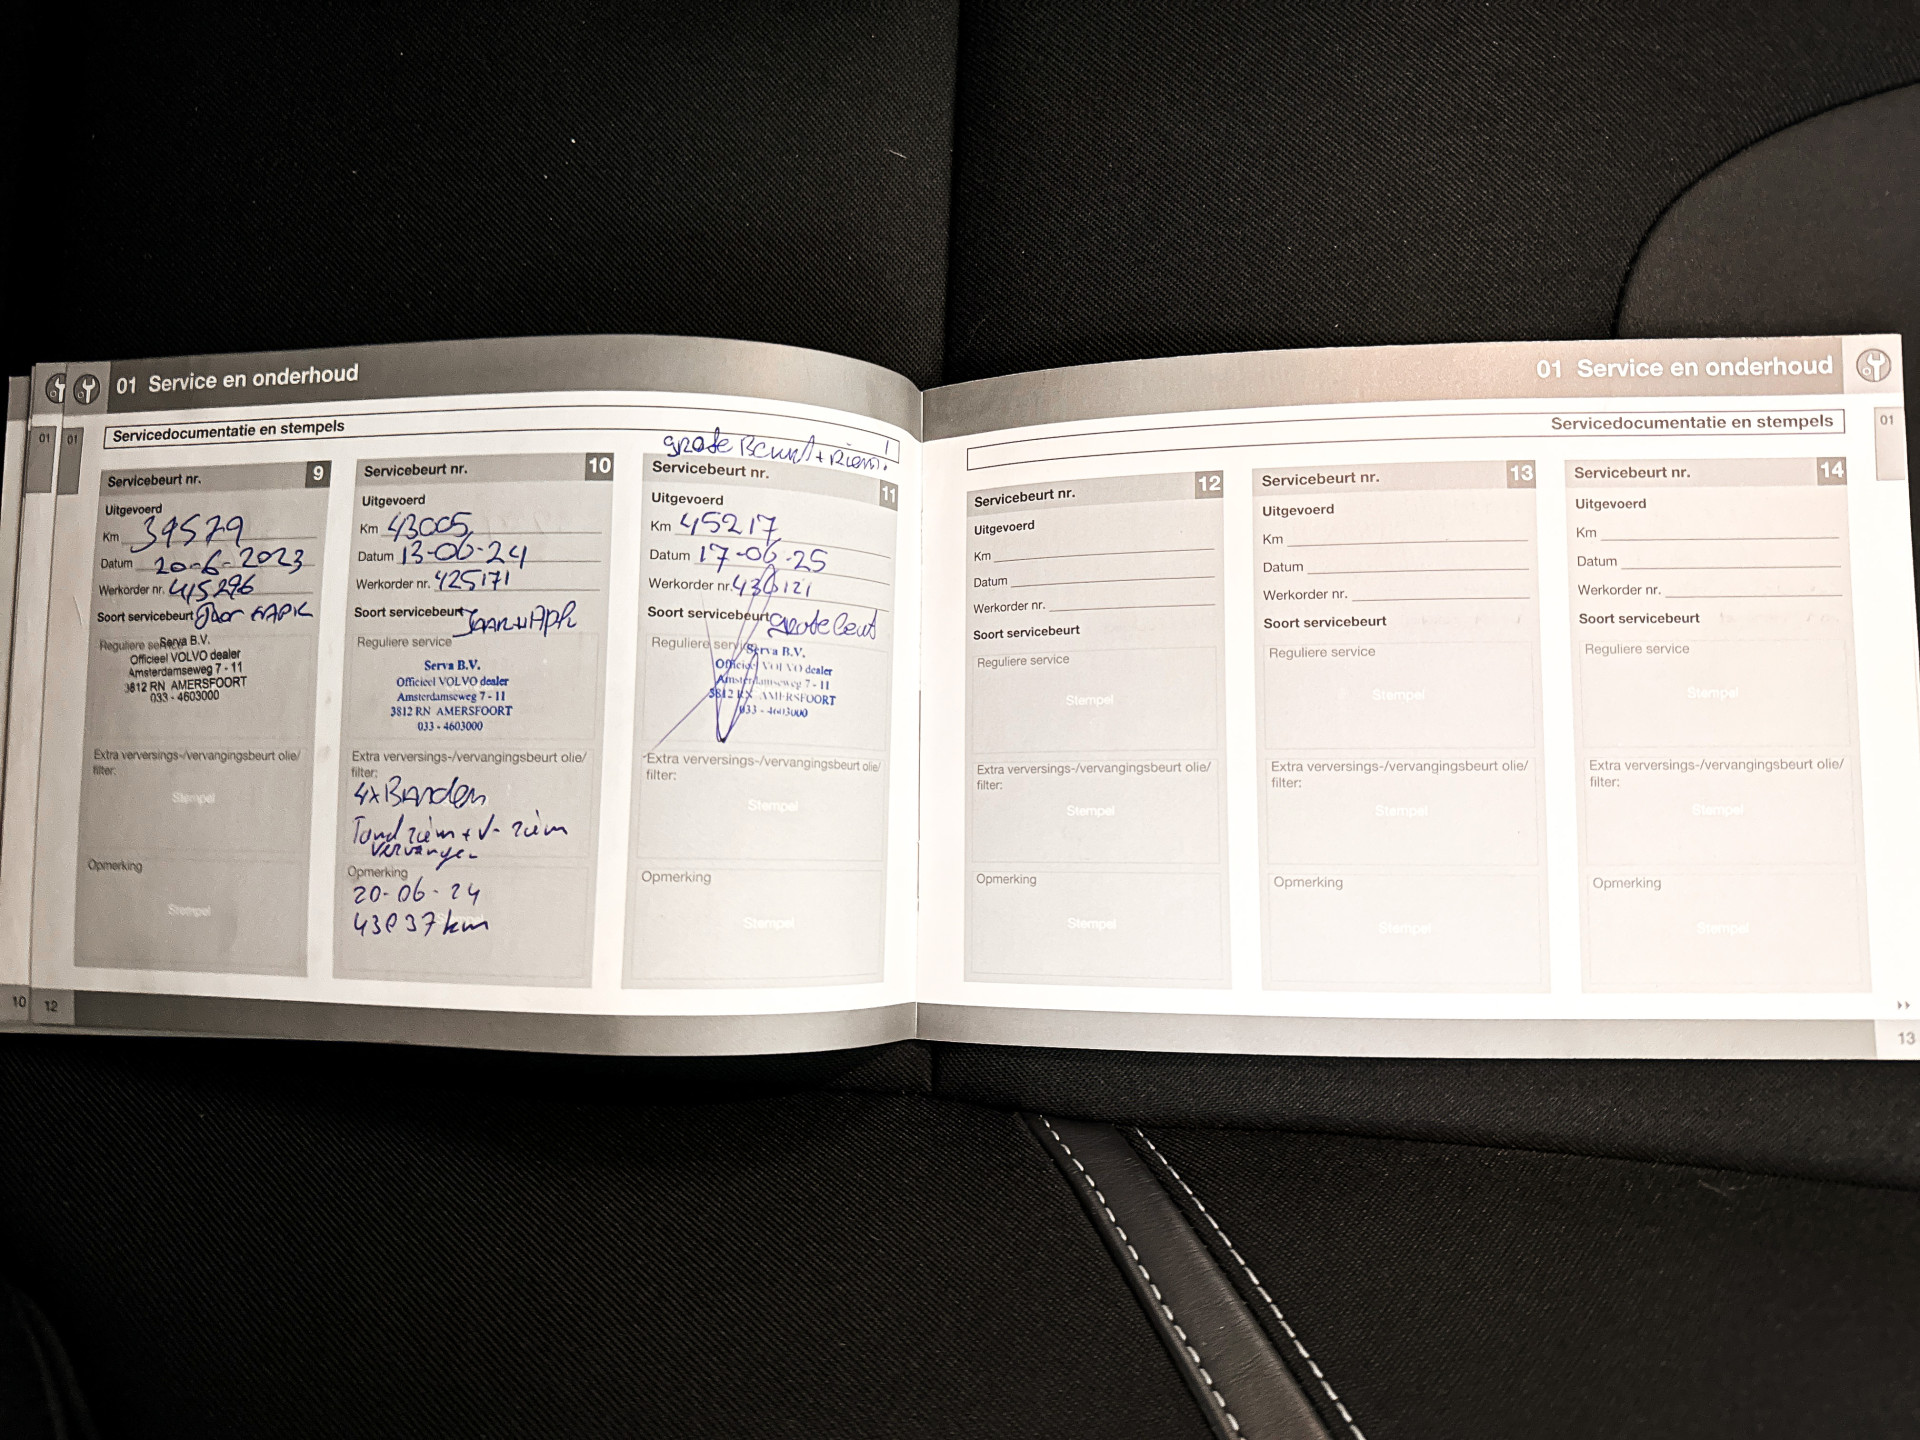 01 Service en onderhoud
Servicedocumentatie en stempels
grote Beurt + Riem!
Servicebeurt nr. 9
Uitgevoerd
Km 39579
Datum 20-6-2023
Werkorder nr. 415296
Soort servicebeurt
Reguliere service
Serva B.V.
Officieel VOLVO dealer
Amsterdamseweg 7 - 11
3812 RN AMERSFOORT
033 - 4603000
Extra verversings-/vervangingsbeurt olie/
filter:
Stempel
Opmerking
Stempel
Servicebeurt nr. 10
Uitgevoerd
Km 43005
Datum 13-06-24
Werkorder nr. 425171
Soort servicebeurt
Reguliere service
Serva B.V.
Officieel VOLVO dealer
Amsterdamseweg 7 - 11
3812 RN AMERSFOORT
033 - 4603000
Extra verversings-/vervangingsbeurt olie/
filter:
4x Banden
Tand riem + V- riem
vervangen
Opmerking
20-06-24
43037 km
Servicebeurt nr. 11
Uitgevoerd
Km 45217
Datum 17-06-25
Werkorder nr.
Soort servicebeurt grote beurt
Reguliere service
Serva B.V.
Officieel VOLVO dealer
Amsterdamseweg 7 - 11
3812 RN AMERSFOORT
033 - 4603000
Extra verversings-/vervangingsbeurt olie/
filter:
Stempel
Opmerking
Stempel
01
01
10
12
01 Service en onderhoud
Servicedocumentatie en stempels
01
Servicebeurt nr. 12
Uitgevoerd
Km
Datum
Werkorder nr.
Soort servicebeurt
Reguliere service
Stempel
Extra verversings-/vervangingsbeurt olie/
filter:
Stempel
Opmerking
Stempel
Servicebeurt nr. 13
Uitgevoerd
Km
Datum
Werkorder nr.
Soort servicebeurt
Reguliere service
Stempel
Extra verversings-/vervangingsbeurt olie/
filter:
Stempel
Opmerking
Stempel
Servicebeurt nr. 14
Uitgevoerd
Km
Datum
Werkorder nr.
Soort servicebeurt
Reguliere service
Stempel
Extra verversings-/vervangingsbeurt olie/
filter:
Stempel
Opmerking
Stempel
13